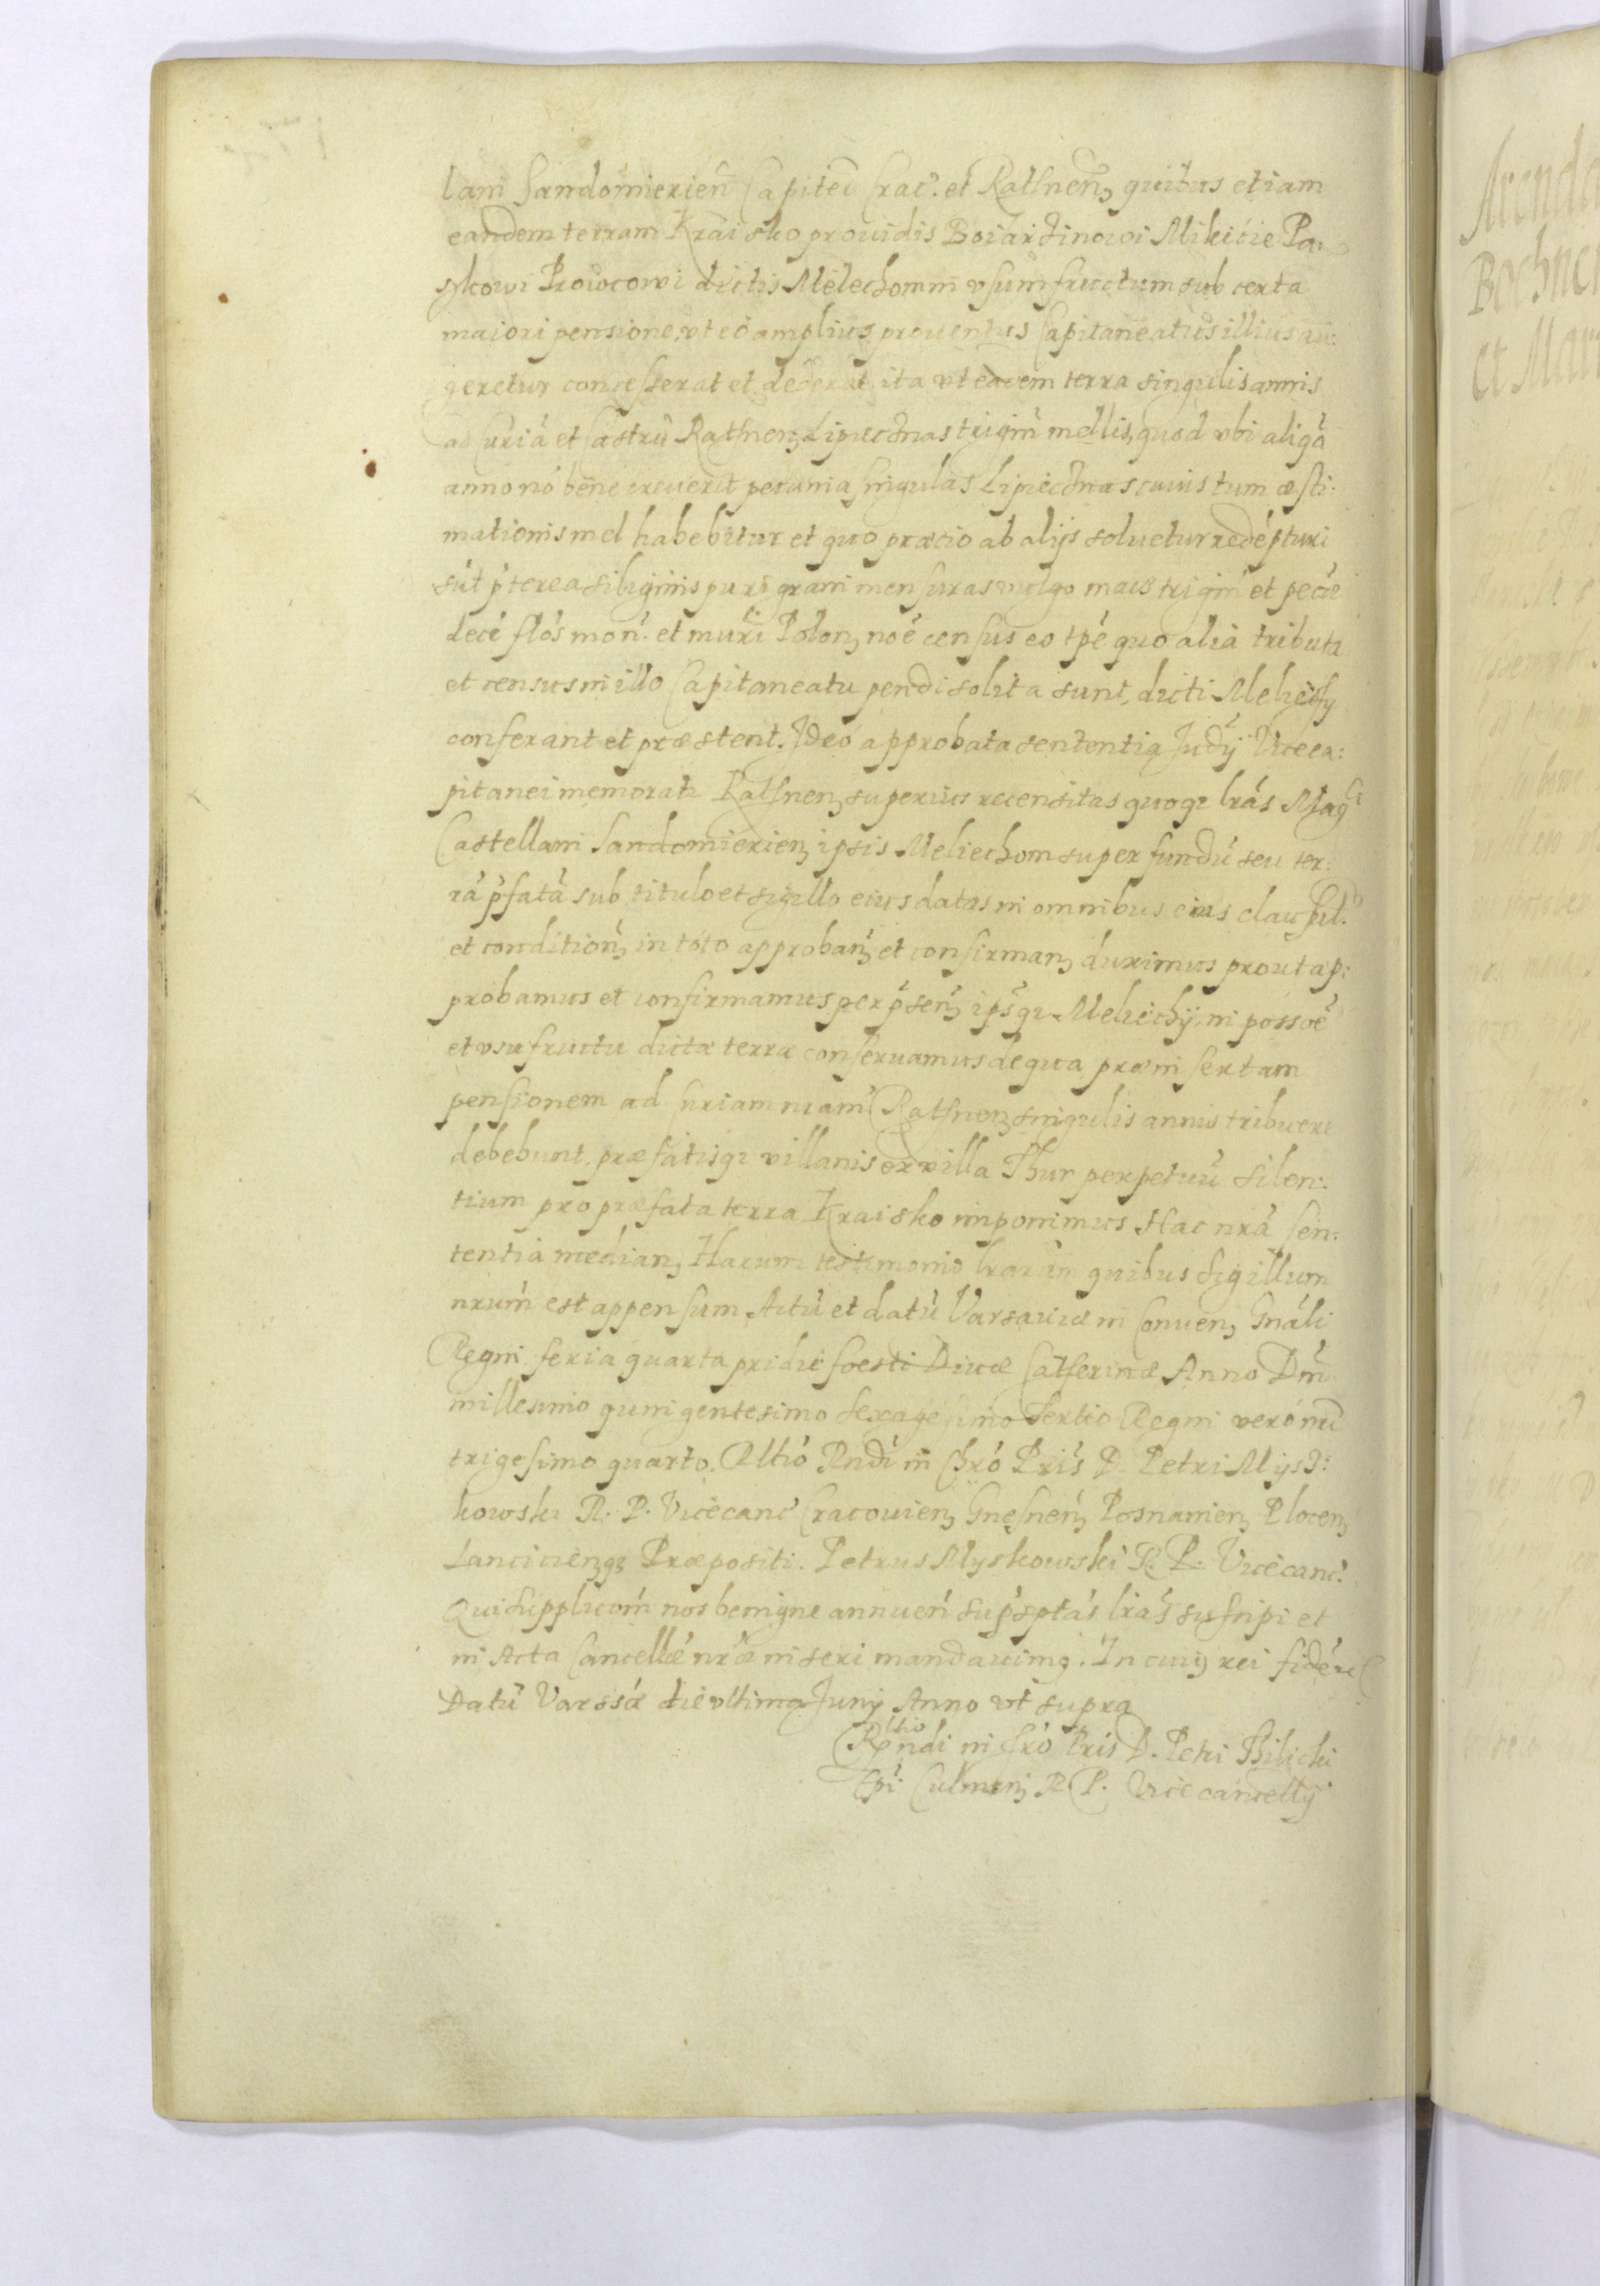 lani Sandomierien Capitei Crac. et Rathnen, quibus etiam
eandem terram Kraisko prouidis Boiar Jinowi Mikicie Pa:
sykowi Prowocowi dictis Melechomm vsumfructum sub certa
maiori pensione, vt eo amplius prouentus Capitaneatus illius au:
geretur concesserat et dederat ita vt eadem terra singulis annis
ad Curiá et Castrú Rathnen, Lipiecznas trigin mellis, quod vbi aliqó
anno nó bene creuerit pecunia singulas Lipiecznas cuius tum æsti:
mationis mel habebitur et quo præcio ab alijs soluetur redépturi
sút pterea siliginis puri grani mensuras vulgo macz trigin et pecæ
decé flós moń. et muri Polon, noé census eo tpé quo alia tributa
et census in illo Capitaneatu pendi solita sunt, dicti Meliechy
conferant et præstent. Ideo approbata sententia Judý Viceca:
pitanei memorati Rathnen, superius recensitas quoq, lrás Magci
Castellani Sandomierien, ipsis Meliechom super fundú seu ter:
rá pfatá sub titulo et sigillo eius datas in omnibus eius clausul.
et condition, in toto approban, et confirman, duximus prout ap:
probamus et confirmamus per psen, ipsq, Meliechy, in possoé
et vsufructu dictæ terræ conseruamus de qua præinsertam
pensionem ad Curiam nram Rathnen, singulis annis tribuere
debebunt. præfatisq, villanis ex villa Thur perpetuú silen:
tium pro præfata terra Kraisko imponimus Hac nrá sen:
tentiá median, Harum testimonio lrarum quibus sigillum
nrúm est appensum, Actú et datú Varsauiæ in Conuen, Gnáli
Regni feria quarta pridie foesti Diuæ Catherinæ Anno Dni
millesimo quingentesimo sexagesimo tertio Regni veró nri
trigesimo quarto. Rltió Rndi in Chró Pris D. Petri Mysz:
kowski R. P. Vicecanc Cracouien, Gnesnen, Posnanien, Plocen,
Lancicien,q, Præpositi. Petrus Myskowski R. P. Vicecanc.
Qui supplicóm nos benigne annuen supsptás lrás suscipi et
in Acta Cancellæ nræ inseri mandauimq. In cuiq rei fidém
Datú Varssæ die vltima Junij Anno vt supra
Rltio
Rndi in Chró Pris D. Petri Thilicki
Epi Culmen, R. P. Vicecancellý
Arenda
Bochnen
et Mar